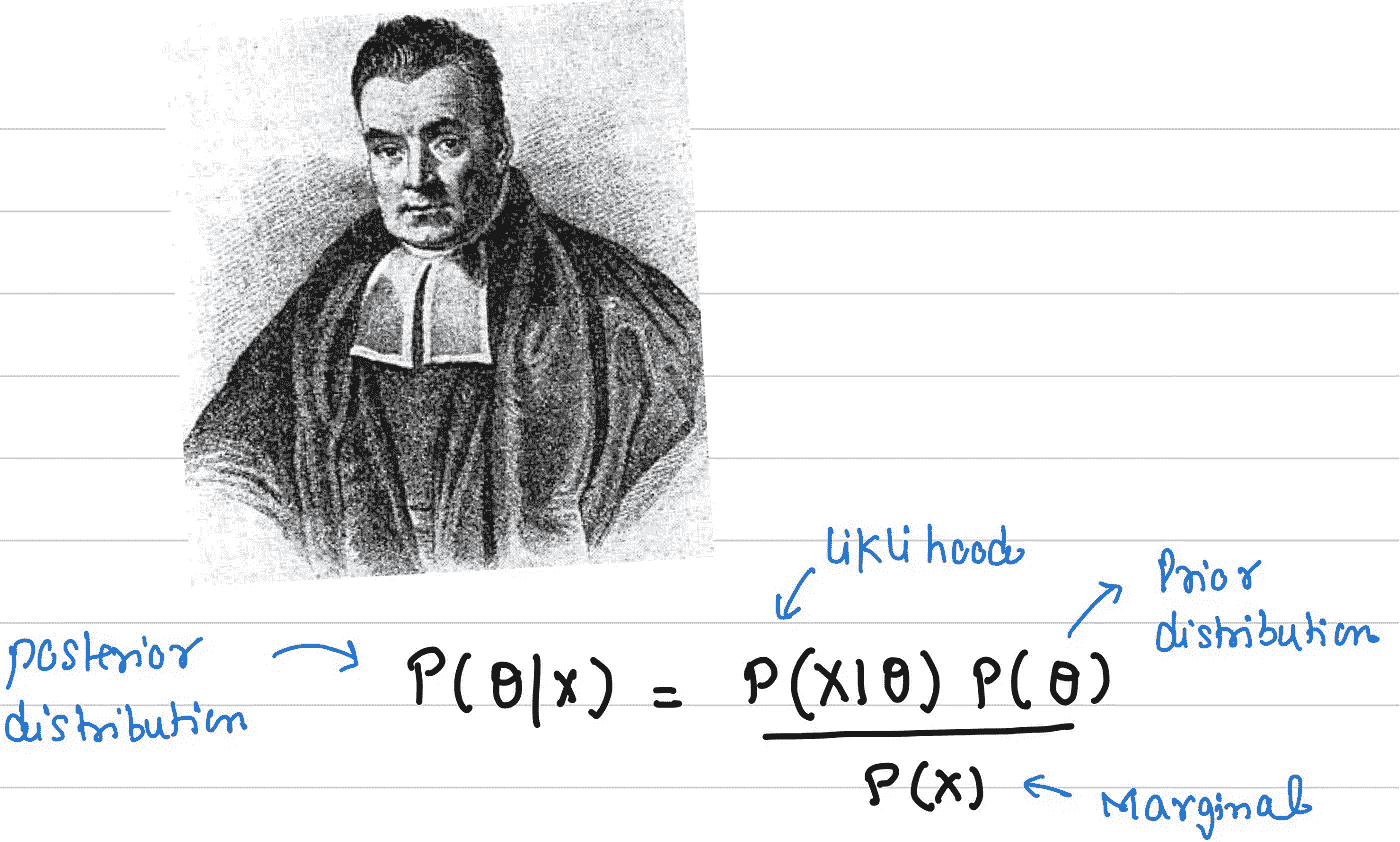 liklihood
Prior
distribution
posterior
distribution
P(θ|x) = P(X|θ) P(θ)
P(x)
Marginal